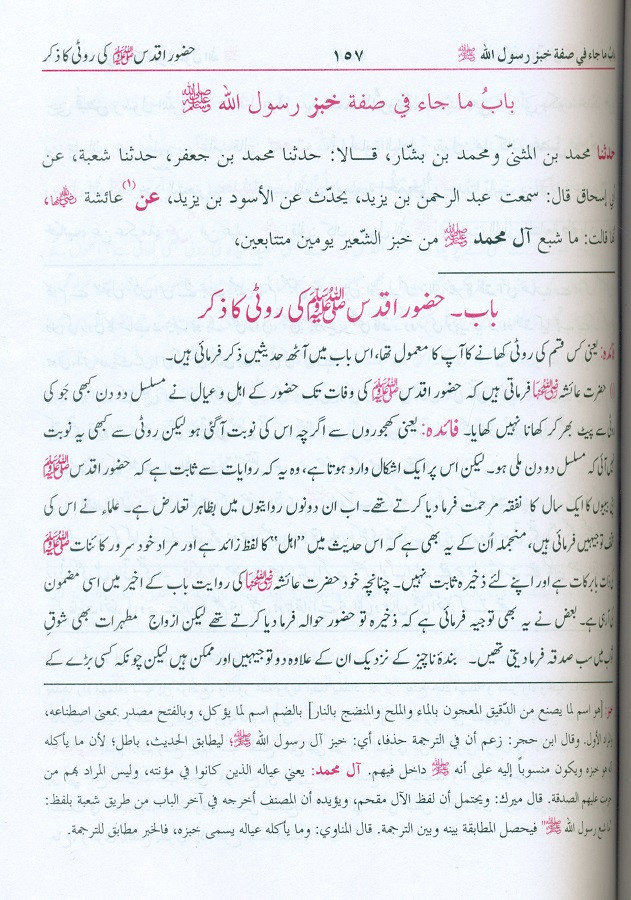 باب ما جاء في صفة خبز رسول الله ﷺ ١٥٧ حضور اقدس ﷺ کی روٹی کا ذکر
بابُ ما جاء في صفة خبز رسول الله ﷺ
حدثنا محمد بن المثنىّ ومحمد بن بشّار، قالا: حدثنا محمد بن جعفر، حدثنا شعبة، عن
أبي إسحاق قال: سمعت عبد الرحمن بن يزيد، يحدّث عن الأسود بن يزيد، عن (١) عائشة رضي الله عنها،
أنها قالت: ما شبع آل محمد ﷺ من خبز الشّعير يومين متتابعين،
باب۔ حضور اقدس ﷺ کی روٹی کا ذکر
فائدہ: یعنی کس قسم کی روٹی کھانے کا آپ کا معمول تھا، اس باب میں آٹھ حدیثیں ذکر فرمائی ہیں۔
(۱) حضرت عائشہ رضی اللہ عنہا فرماتی ہیں کہ حضور اقدس ﷺ کی وفات تک حضور کے اہل و عیال نے مسلسل دو دن کبھی جَو کی
روٹی سے پیٹ بھر کر کھانا نہیں کھایا۔ فائدہ: یعنی کھجوروں سے اگرچہ اس کی نوبت آگئی ہو لیکن روٹی سے کبھی یہ نوبت
نہیں آئی کہ مسلسل دو دن ملی ہو۔ لیکن اس پر ایک اشکال وارد ہوتا ہے، وہ یہ کہ روایات سے ثابت ہے کہ حضور اقدس ﷺ
بیبیوں کا ایک سال کا نفقہ مرحمت فرما دیا کرتے تھے۔ اب ان دونوں روایتوں میں بظاہر تعارض ہے۔ علماء نے اس کی
توجیہیں فرمائی ہیں، منجملہ اُن کے یہ بھی ہے کہ اس حدیث میں "اہل" کا لفظ زائد ہے اور مراد خود سرور کائنات ﷺ
کی ذات بابرکات ہے اور اپنے لئے ذخیرہ ثابت نہیں۔ چنانچہ خود حضرت عائشہ رضی اللہ عنہا کی روایت باب کے اخیر میں اسی مضمون
کی آرہی ہے۔ بعض نے یہ بھی توجیہ فرمائی ہے کہ ذخیرہ تو حضور حوالہ فرما دیا کرتے تھے لیکن ازواج مطہرات بھی شوقِ
میں سب صدقہ فرما دیتی تھیں۔ بندۂ ناچیز کے نزدیک ان کے علاوہ دو توجیہیں اور ممکن ہیں لیکن چونکہ کسی بڑے کے
خبز: [هو اسم لما يصنع من الدّقيق المعجون بالماء والملح والمنضج بالنار] بالضم اسم لما يؤكل، وبالفتح مصدر بمعنى اصطناعه،
والمراد الأول. وقال ابن حجر: زعم أن في الترجمة حذفا، أي: خبز آل رسول الله ﷺ؛ ليطابق الحديث، باطل؛ لأن ما يأكله
خبزه ويكون منسوباً إليه على أنه ﷺ داخل فيهم. آل محمد: يعني عياله الذين كانوا في مؤنته، وليس المراد بهم من
حرمت عليهم الصدقة. قال ميرك: ويحتمل أن لفظ الآل مقحم، ويؤيده أن المصنف أخرجه في آخر الباب من طريق شعبة بلفظ:
"ما شبع رسول الله ﷺ" فيحصل المطابقة بينه وبين الترجمة. قال المناوي: وما يأكله عياله يسمى خبزه، فالخبر مطابق للترجمة.